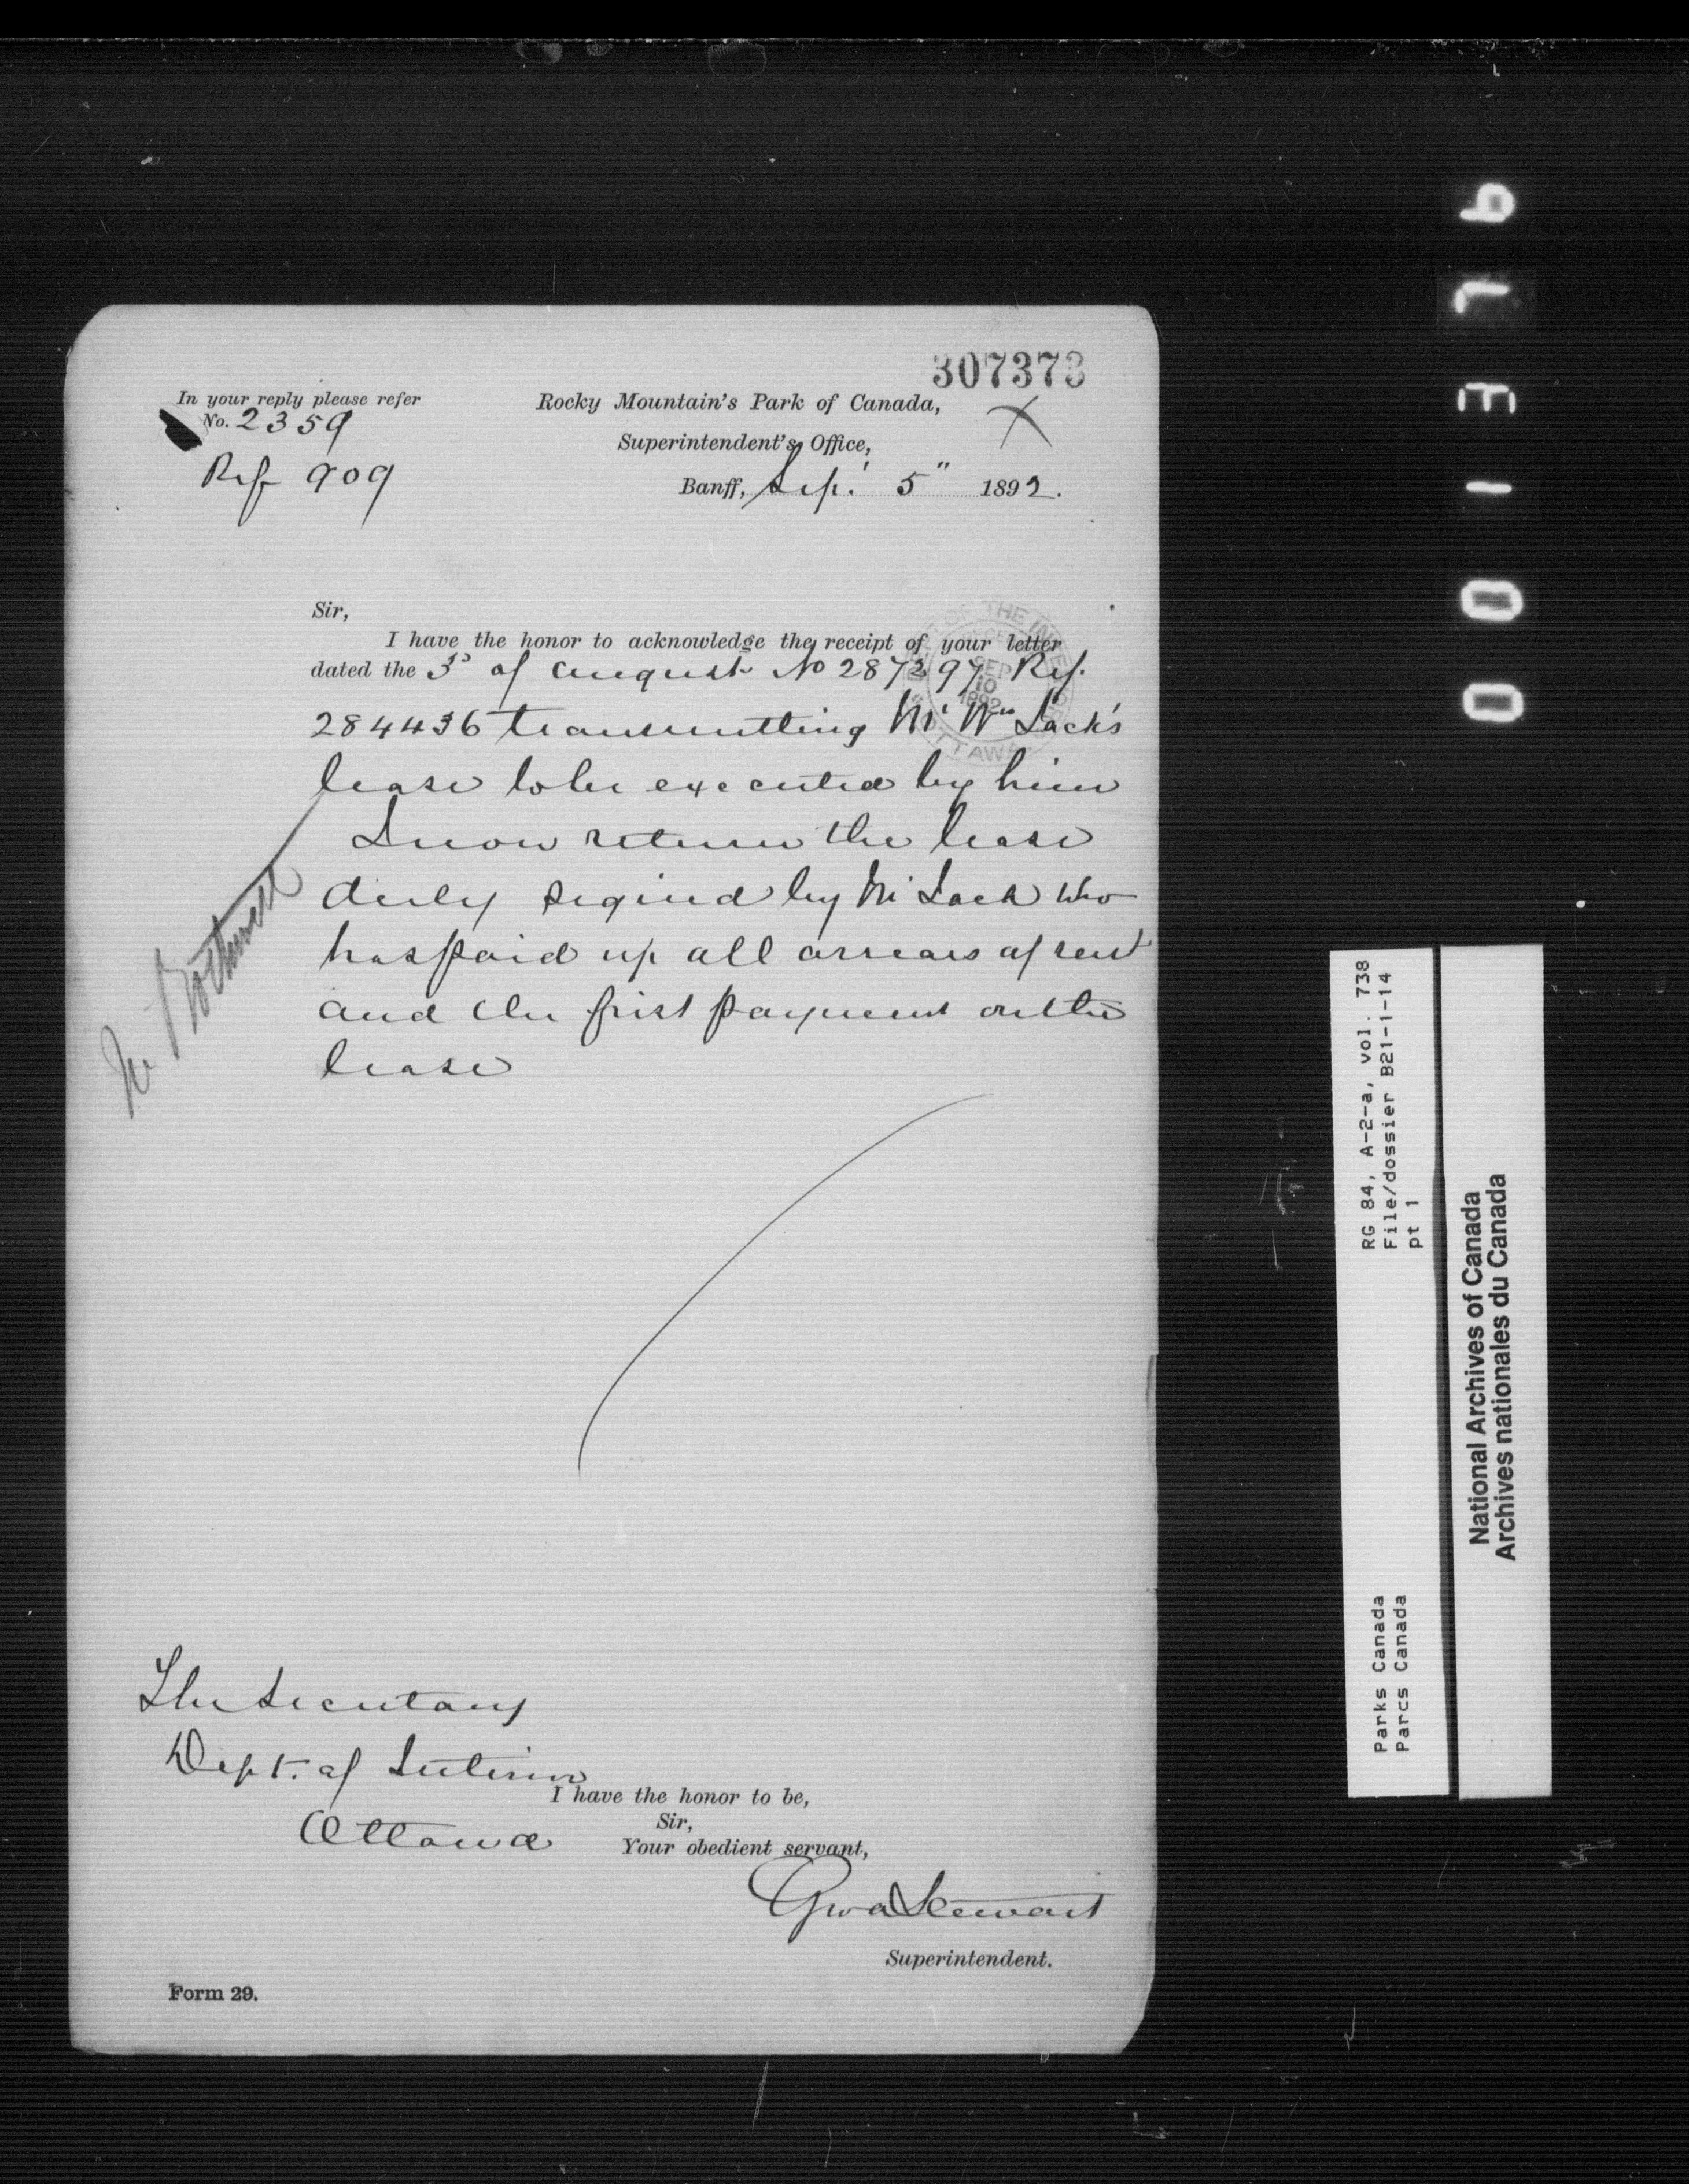 307373
In your reply please refer
No. 2359
Ref 909
Rocky Mountain's Park of Canada,
Superintendent's Office,
Banff, Sep. 5" 1892.
Sir,
I have the honor to acknowledge the receipt of your letter
dated the 3d of August No 287297 Ref.
284436 transmitting Mr Wm Lack's
lease to be executed by him
I now return the lease
duly signed by Mr Lack who
has paid up all arrears of rent
and the first payment on the
lease
Mr Rothwell
DEPT OF THE INTERIOR
RECEIVED
SEP
10
1892
OTTAWA
The Secretary
Dept. of Interior
Ottawa
I have the honor to be,
Sir,
Your obedient servant,
Geo A Stewart
Superintendent.
Form 29.
001376
RG 84, A-2-a, vol. 738
File/dossier B21-1-14
pt 1
Parks Canada
Parcs Canada
National Archives of Canada
Archives nationales du Canada